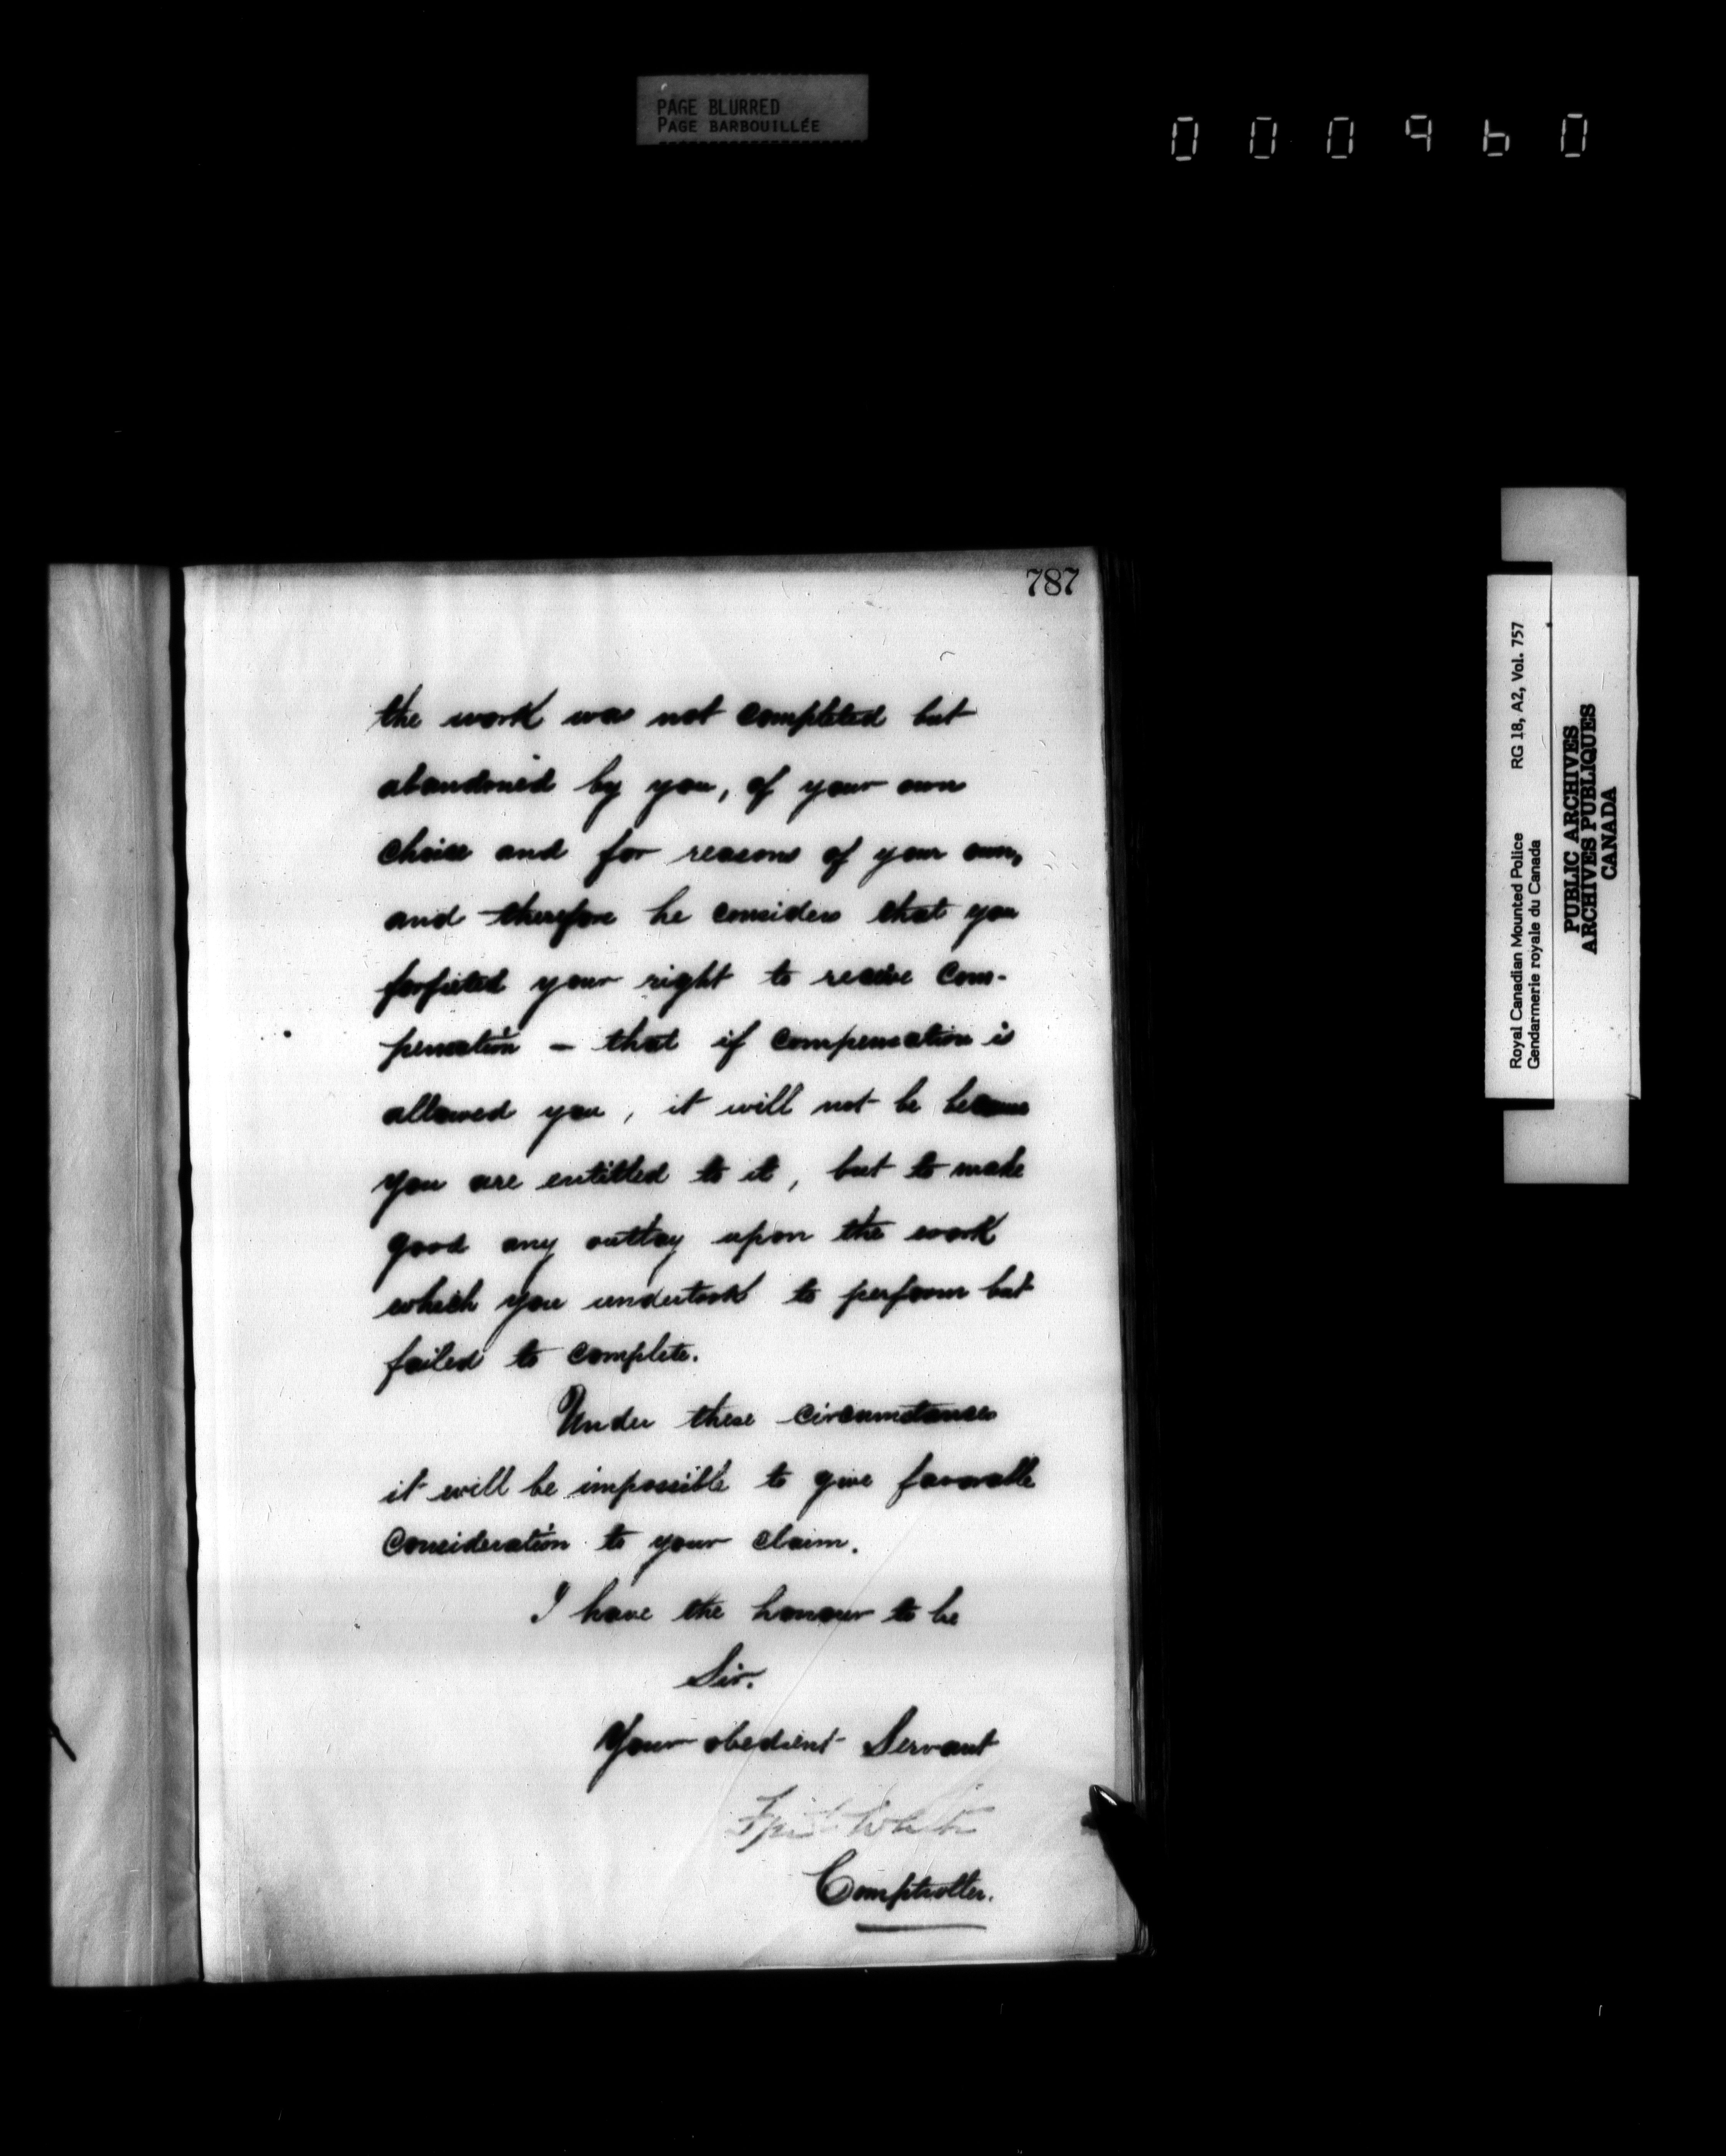 PAGE BLURRED
PAGE BARBOUILLÉE
000960
787
the work was not completed but
abandoned by you, of your own
choice and for reasons of your own,
and therefore he considers that you
forfieted your right to receive com-
pensation – that if compensation is
allowed you, it will not be because
you are entitled to it, but to make
good any outlay upon the work
which you undertook to perform but
failed to complete.
Under these circumstances
it will be impossible to give favorable
consideration to your claim.
I have the honour to be
Sir.
Your obedient Servant
White
Comptroller.
Royal Canadian Mounted Police RG 18, A2, Vol. 757
Gendarmerie royale du Canada
PUBLIC ARCHIVES
ARCHIVES PUBLIQUES
CANADA